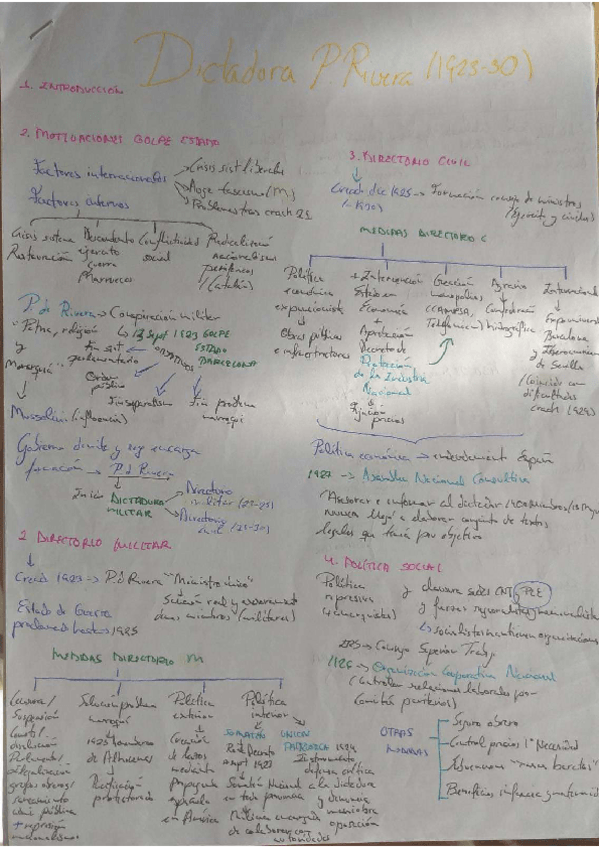 Dictadora P. Rivera (1923-30)
1. INTRODUCCIÓN
2. MOTIVACIONES GOLPE ESTADO
Factores internacionales
Crisis sist liberales
Auge fascismo (M)
Problemas tras crash 29
Factores internos
Crisis sistema
Restauración
Descontento
ejército
guerra
Marruecos
Conflictividad
social
Radicalización
nacionalismo
periféricos
(catalán)
P. de Rivera → Conspiración militar
"Patria, religión
y
Monarquía"
13 sept 1923 GOLPE
ESTADO
BARCELONA
Fin sist.
parlamentario
OBJETIVOS
Orden
público
Fin separatismo
Fin problema
marroquí
Mussolini (influencia)
Gobierno dimite y rey encarga
formación → P. d Rivera
Inicia DICTADURA
MILITAR
Directorio
militar (23-25)
Directorio
civil (25-30)
2 DIRECTORIO MILITAR
Creado 1923 → P. d Rivera "Ministro único"
Estado de Guerra
proclamado hasta 1925
MEDIDAS DIRECTORIO M
Censura/
Suspensión
Const./
disolución
Parlamento/
grupos obreros/
orden público
+ represión
nacionalismos
Solución problema
marroquí
1925 Desembarco
de Alhucemas
Pacificación
protectorado
Política
exterior
Creación
de lazos
mediante
Propaganda
española
en América
Política
interior
SOMATÉN
Real Decreto
sept 1923
Somatén Nacional
en toda
de colaborar con
autoridades
UNIÓN
PATRIÓTICA 1924
Instrumento
defensa política
a la dictadura
y denuncia
maniobra
oposición
3. DIRECTORIO CIVIL
Creado dic 1925 → Formación consejo de ministros
(-1930)
(Ejército y civiles)
MEDIDAS DIRECTORIO C
Política
económica
expansionista
Obras públicas
e infraestructuras
+ Intervención
Estado en
Economía
Aprobación
Decreto de
Protección
de la Industria
Nacional
Fijación
precios
Creación
monopolios
(CAMPSA,
Telefónica)
Agrario
Confederación
hidrográfica
Internacional
Exposiciones
Barcelona
y Iberoamericana
de Sevilla
(Coincide con
dificultades
crash 1929)
Política económica → endeudamiento España
1927 → Asamblea Nacional Consultiva
"Asesorar e informar al dictador"
nunca llegó a elaborar conjunto de textos
legales que tenía por objetivo
4. POLÍTICA SOCIAL
Política
represiva
(anarquistas)
y clausura sedes CNT, PCE
y fuerzas republicanas y nacionalistas
socialistas mantienen organizaciones
→ Consejo Superior Trabajo
1926 → Organización Corporativa Nacional
(Controlar relaciones laborales por
comités paritarios)
OTRAS
MEDIDAS
Seguro obrero
Control precios 1ª Necesidad
"casas baratas"
Beneficios infancia y maternidad